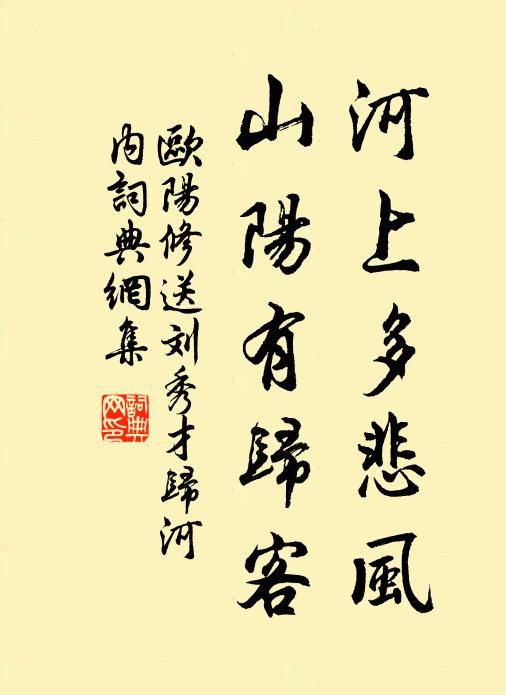 河上多悲風
山陽有歸客
歐陽修送刘秀才歸河
內詞典網集
詞典网印